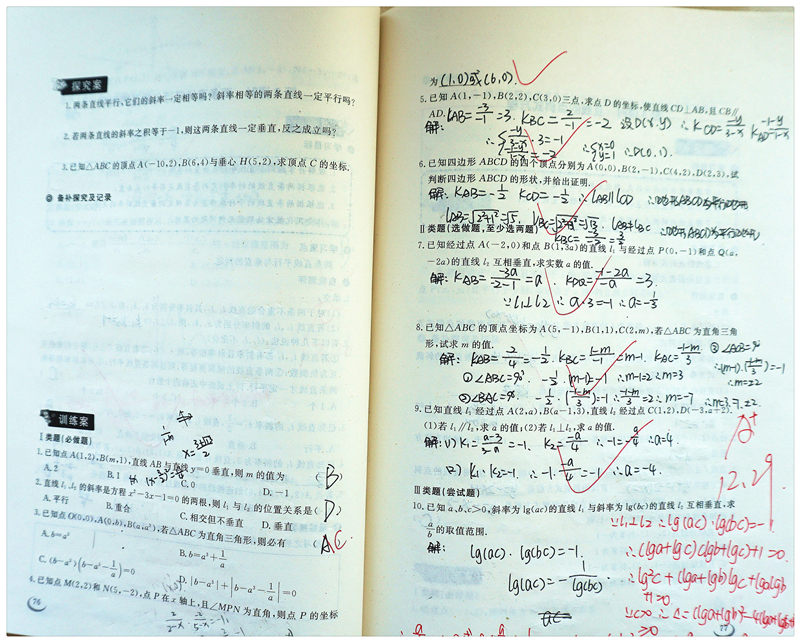 探究案
1.两条直线平行,它们的斜率一定相等吗?斜率相等的两条直线一定平行吗?
2.若两条直线的斜率之积等于-1,则这两条直线一定垂直,反之成立吗?
3.已知△ABC的顶点A(-10,2),B(6,4)与垂心H(5,2),求顶点C的坐标.
备补探究及记录
训练案
Ⅰ类题(必做题)
1.已知点A(1,2),B(m,1),直线AB与直线y=0垂直,则m的值为 (B)
A.2 B.1 C.0 D.-1
2.直线l₁,l₂的斜率是方程x²-3x-1=0的两根,则l₁与l₂的位置关系是(D)
A.平行 B.重合 C.相交但不垂直 D.垂直
3.已知点O(0,0),A(0,b),B(a,a³),若△ABC为直角三角形,则必有 AC
A.b=a³ B.b=a³+1/a
C.(b-a³)(b-a³-1/a)=0 D.|b-a³|+|b-a³-1/a|=0
4.已知点M(2,2)和N(5,-2),点P在x轴上,且∠MPN为直角,则点P的坐标
76
为(1,0)或(6,0).
5.已知A(1,-1),B(2,2),C(3,0)三点,求点D的坐标,使直线CD⊥AB,且CB∥
AD.
解: K_AB=-3/-1=3. K_BC=2/-1=-2 设D(x,y) ∴K_CD=-y/3-x K_AD=-1-y/1-x
∴{-y/3-x·3=-1 ∴{x=0 y=1 ∴D(0,1).
6.已知四边形ABCD的四个顶点分别为A(0,0),B(2,-1),C(4,2),D(2,3),试
判断四边形ABCD的形状,并给出证明.
解: K_AB=-1/2 K_CD=-1/2 ∴l_AB∥l_CD
Ⅱ类题(选做题,至少选两题)
7.已知经过点A(-2,0)和点B(1,3a)的直线l₁与经过点P(0,-1)和点Q(a,
-2a)的直线l₂互相垂直,求实数a的值.
解: K_AB=-3a/-2-1=a. K_PQ=-1+2a/-a=3.
∵l₁⊥l₂ ∴a·3=-1 ∴a=-1/3
8.已知△ABC的顶点坐标为A(5,-1),B(1,1),C(2,m),若△ABC为直角三角
形,试求m的值.
解: K_AB=-2/4=-1/2. K_BC=1-m/-1=m-1. K_AC=-1-m/3
①∠ABC=90° -1/2·(m-1)=-1 ∴m-1=2 ∴m=3
②∠BAC=90° -1/2·(-1-m/3)=-1 ∴-1-m/3=2 ∴m=-7
③∠ACB=90° ∴(m-1)·(-1-m/3)=-1
∴m=±2
∴m=3,-7,±2.
9.已知直线l₁经过点A(2,a),B(a-1,3),直线l₂经过点C(1,2),D(-3,a+2).
(1)若l₁∥l₂,求a的值;(2)若l₁⊥l₂,求a的值.
解: (1) K₁=a-3/3-a=-1. K₂=-a/4 ∴-1=-a/4 ∴a=4.
(2) K₁·K₂=-1 ∴-1·-a/4=-1 ∴a=-4.
A⁺
12.29
Ⅲ类题(尝试题)
10.已知a,b,c>0,斜率为lg(ac)的直线l₁与斜率为lg(bc)的直线l₂互相垂直,求
a/b的取值范围.
解: lg(ac)·lg(bc)=-1.
lg(ac)=-1/lg(bc)
∵l₁⊥l₂ ∴lg(ac)·lg(bc)=-1
∴(lga+lgc)(lgb+lgc)+1=0.
∴lg²c+(lga+lgb)lgc+lgalgb
+1=0
77